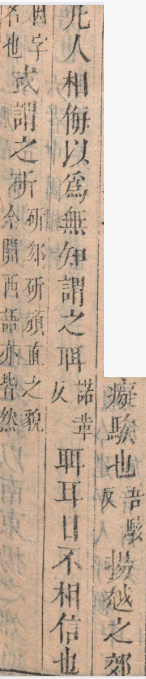 癡騃也吾駭反揚越之郊
凡人相侮以爲無知謂之眲諾革反眲耳目不相信也
因字名也或謂之斫斫郤斫頑直之貌今關西語亦皆然